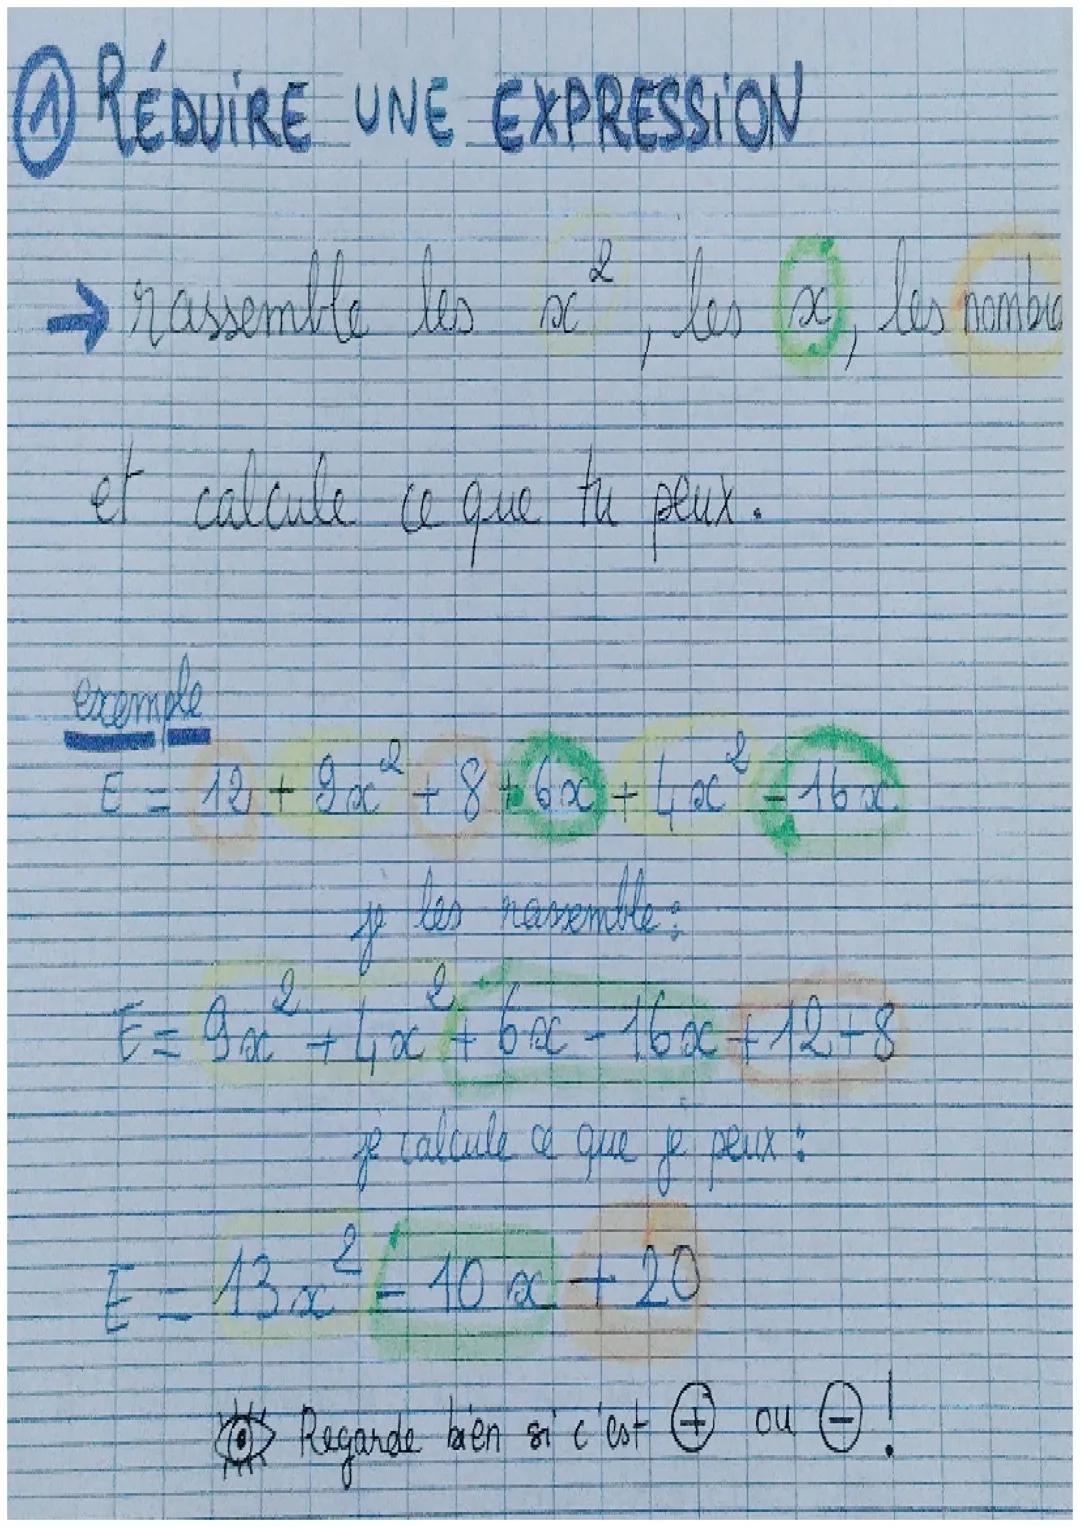 ① RÉDUIRE UNE EXPRESSION
→ rassemble les x², les x, les nombre
et calcule ce que tu peux.
exemple
E = 12 + 9x² + 8 + 6x + 4x² - 16x
je les rassemble :
E = 9x² + 4x² + 6x - 16x + 12 + 8
je calcule ce que je peux :
E = 13x² - 10x + 20
Regarde bien si c'est ⊕ ou ⊖ !